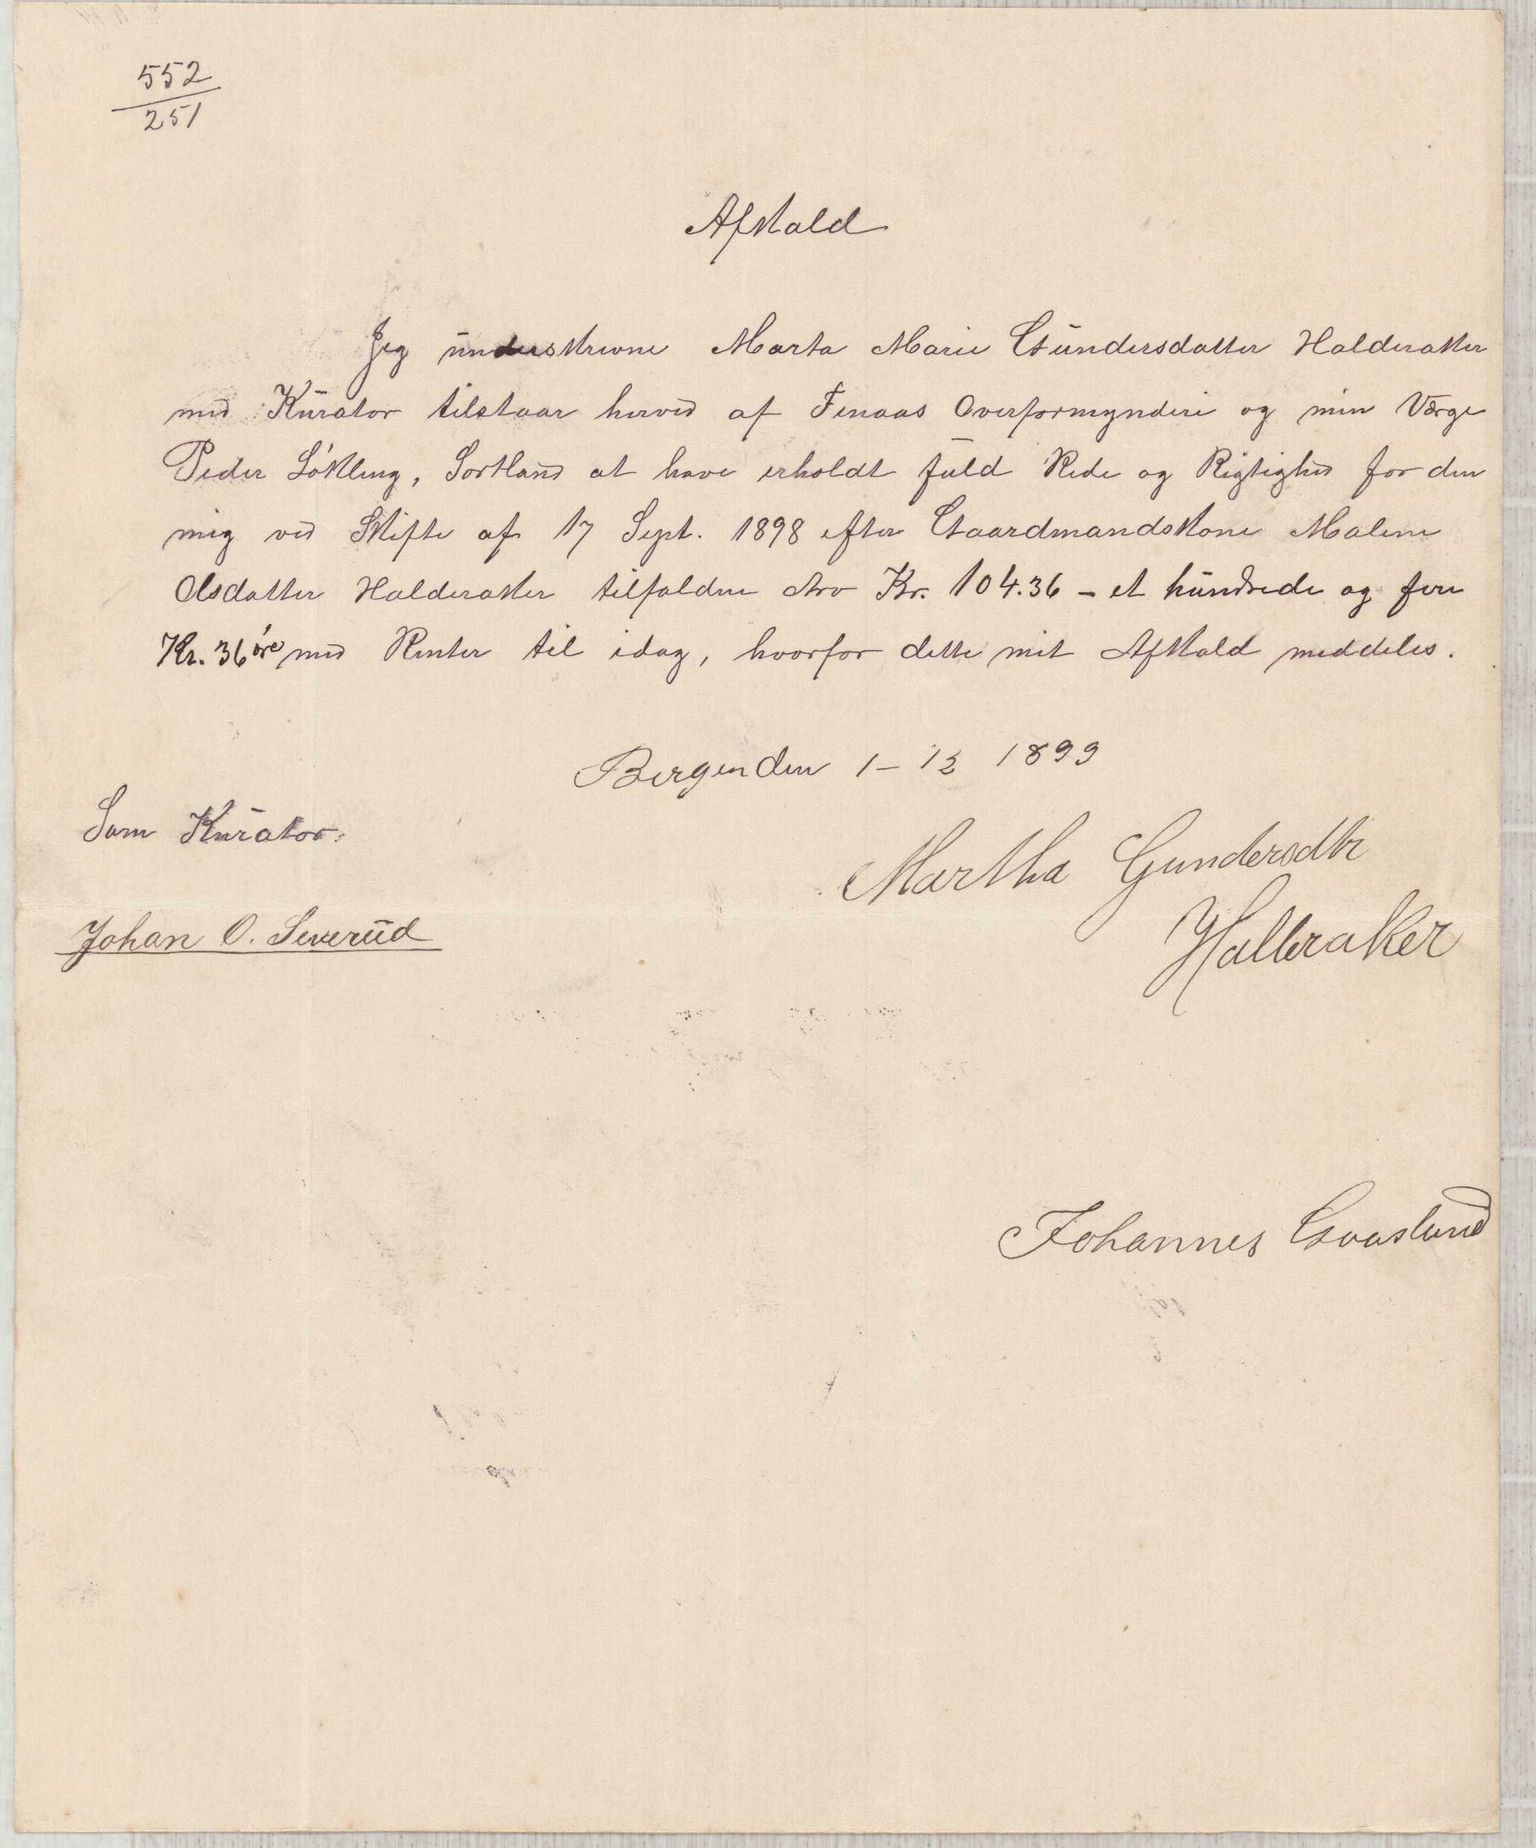 552
251
Afkald
Jeg underskrevne Marta Marie Gundersdatter Halderaker
med Kurator tilstaar herved af Finaas Overformynderi og min Værge
Peder Løkling, Sortland at have erholdt fuld Rede og Rigtighed for den
mig ved Skifte af 17 Sept. 1898 efter Gaardmandskone Malene
Olsdatter Halderaker tilfaldne Arv Kr. 104.36 – et hundrede og fire
Kr. 36 øre med Renter til idag, hvorfor dette mit Afkald meddeles.
Bergen den 1 – 12 1899
Som Kurator:
Martha Gundersdtr
Johan O. Severud
Halleraker
Johannes Gaasland